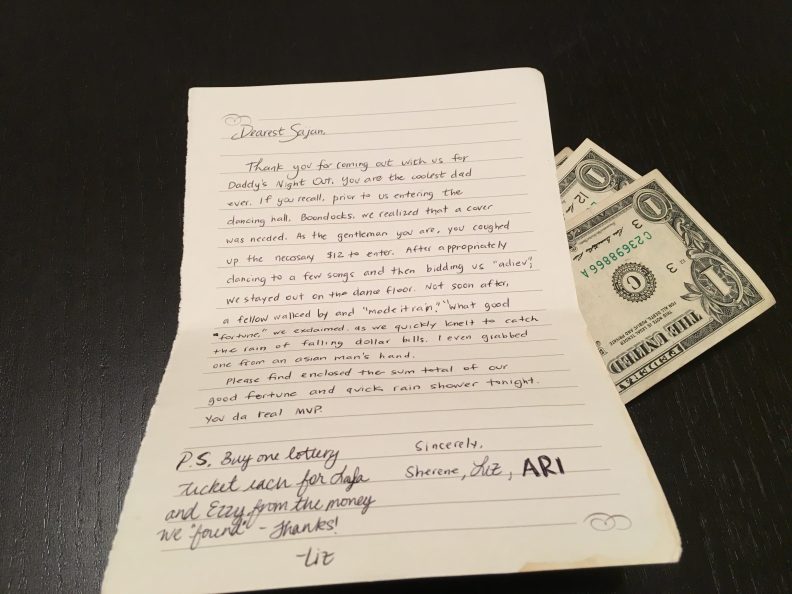 Dearest Sajan,
Thank you for coming out with us for
Daddy's Night Out. You are the coolest dad
ever. If you recall, prior to us entering the
dancing hall, Boondocks, we realized that a cover
was needed. As the gentleman you are, you coughed
up the necessary $12 to enter. After appropriately
dancing to a few songs and then bidding us "adiev",
we stayed out on the dance floor. Not soon after,
a fellow walked by and "made it rain." "What good
fortune," we exclaimed, as we quickly knelt to catch
the rain of falling dollar bills. I even grabbed
one from an asian man's hand.
Please find enclosed the sum total of our
good fortune and quick rain shower tonight.
You da real MVP.
Sincerely,
Sherene, Liz, ARI
P.S. Buy one lottery
ticket each for Lala
and Ezzy from the money
we "found" - Thanks!
-Liz
1
12
1
C 23698866 A
3
3
12
C
1
THIS NOTE IS LEGAL TENDER
FOR ALL DEBTS, PUBLIC AND PRIVATE
THE UNITED
FEDERA